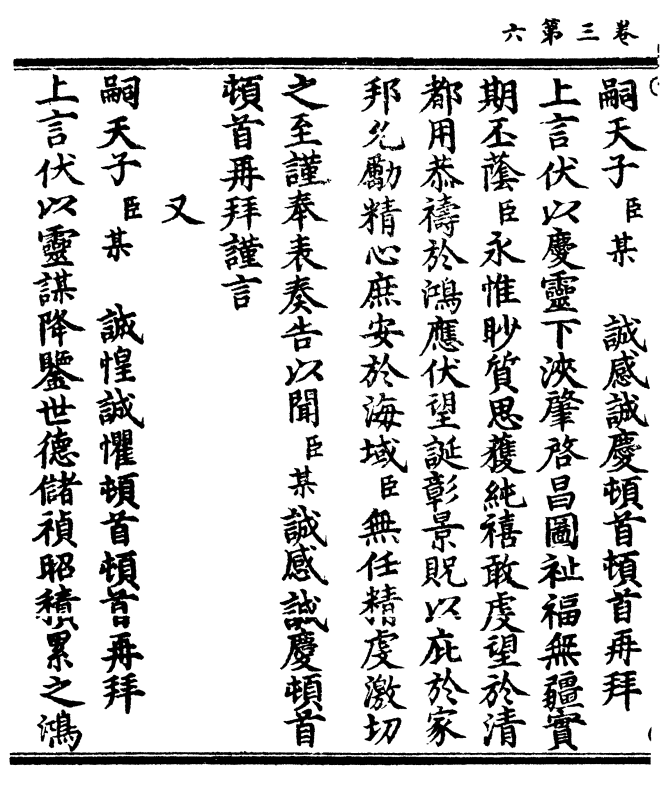 卷三第六
嗣天子臣某 誠感誠慶頓首頓首再拜
上言伏以慶靈下浹肇啓昌圖祉福無疆實
期丕蔭臣永惟眇質思獲純禧敢虔望於清
都用恭禱於鴻應伏望誕彰景貺以庇於家
邦允勵精心庶安於海域臣無任精虔激切
之至謹奉表奏告以聞臣某誠感誠慶頓首
頓首再拜謹言
又
嗣天子臣某 誠惶誠懼頓首頓首再拜
上言伏以靈謀降鑒世德儲禎昭積累之鴻